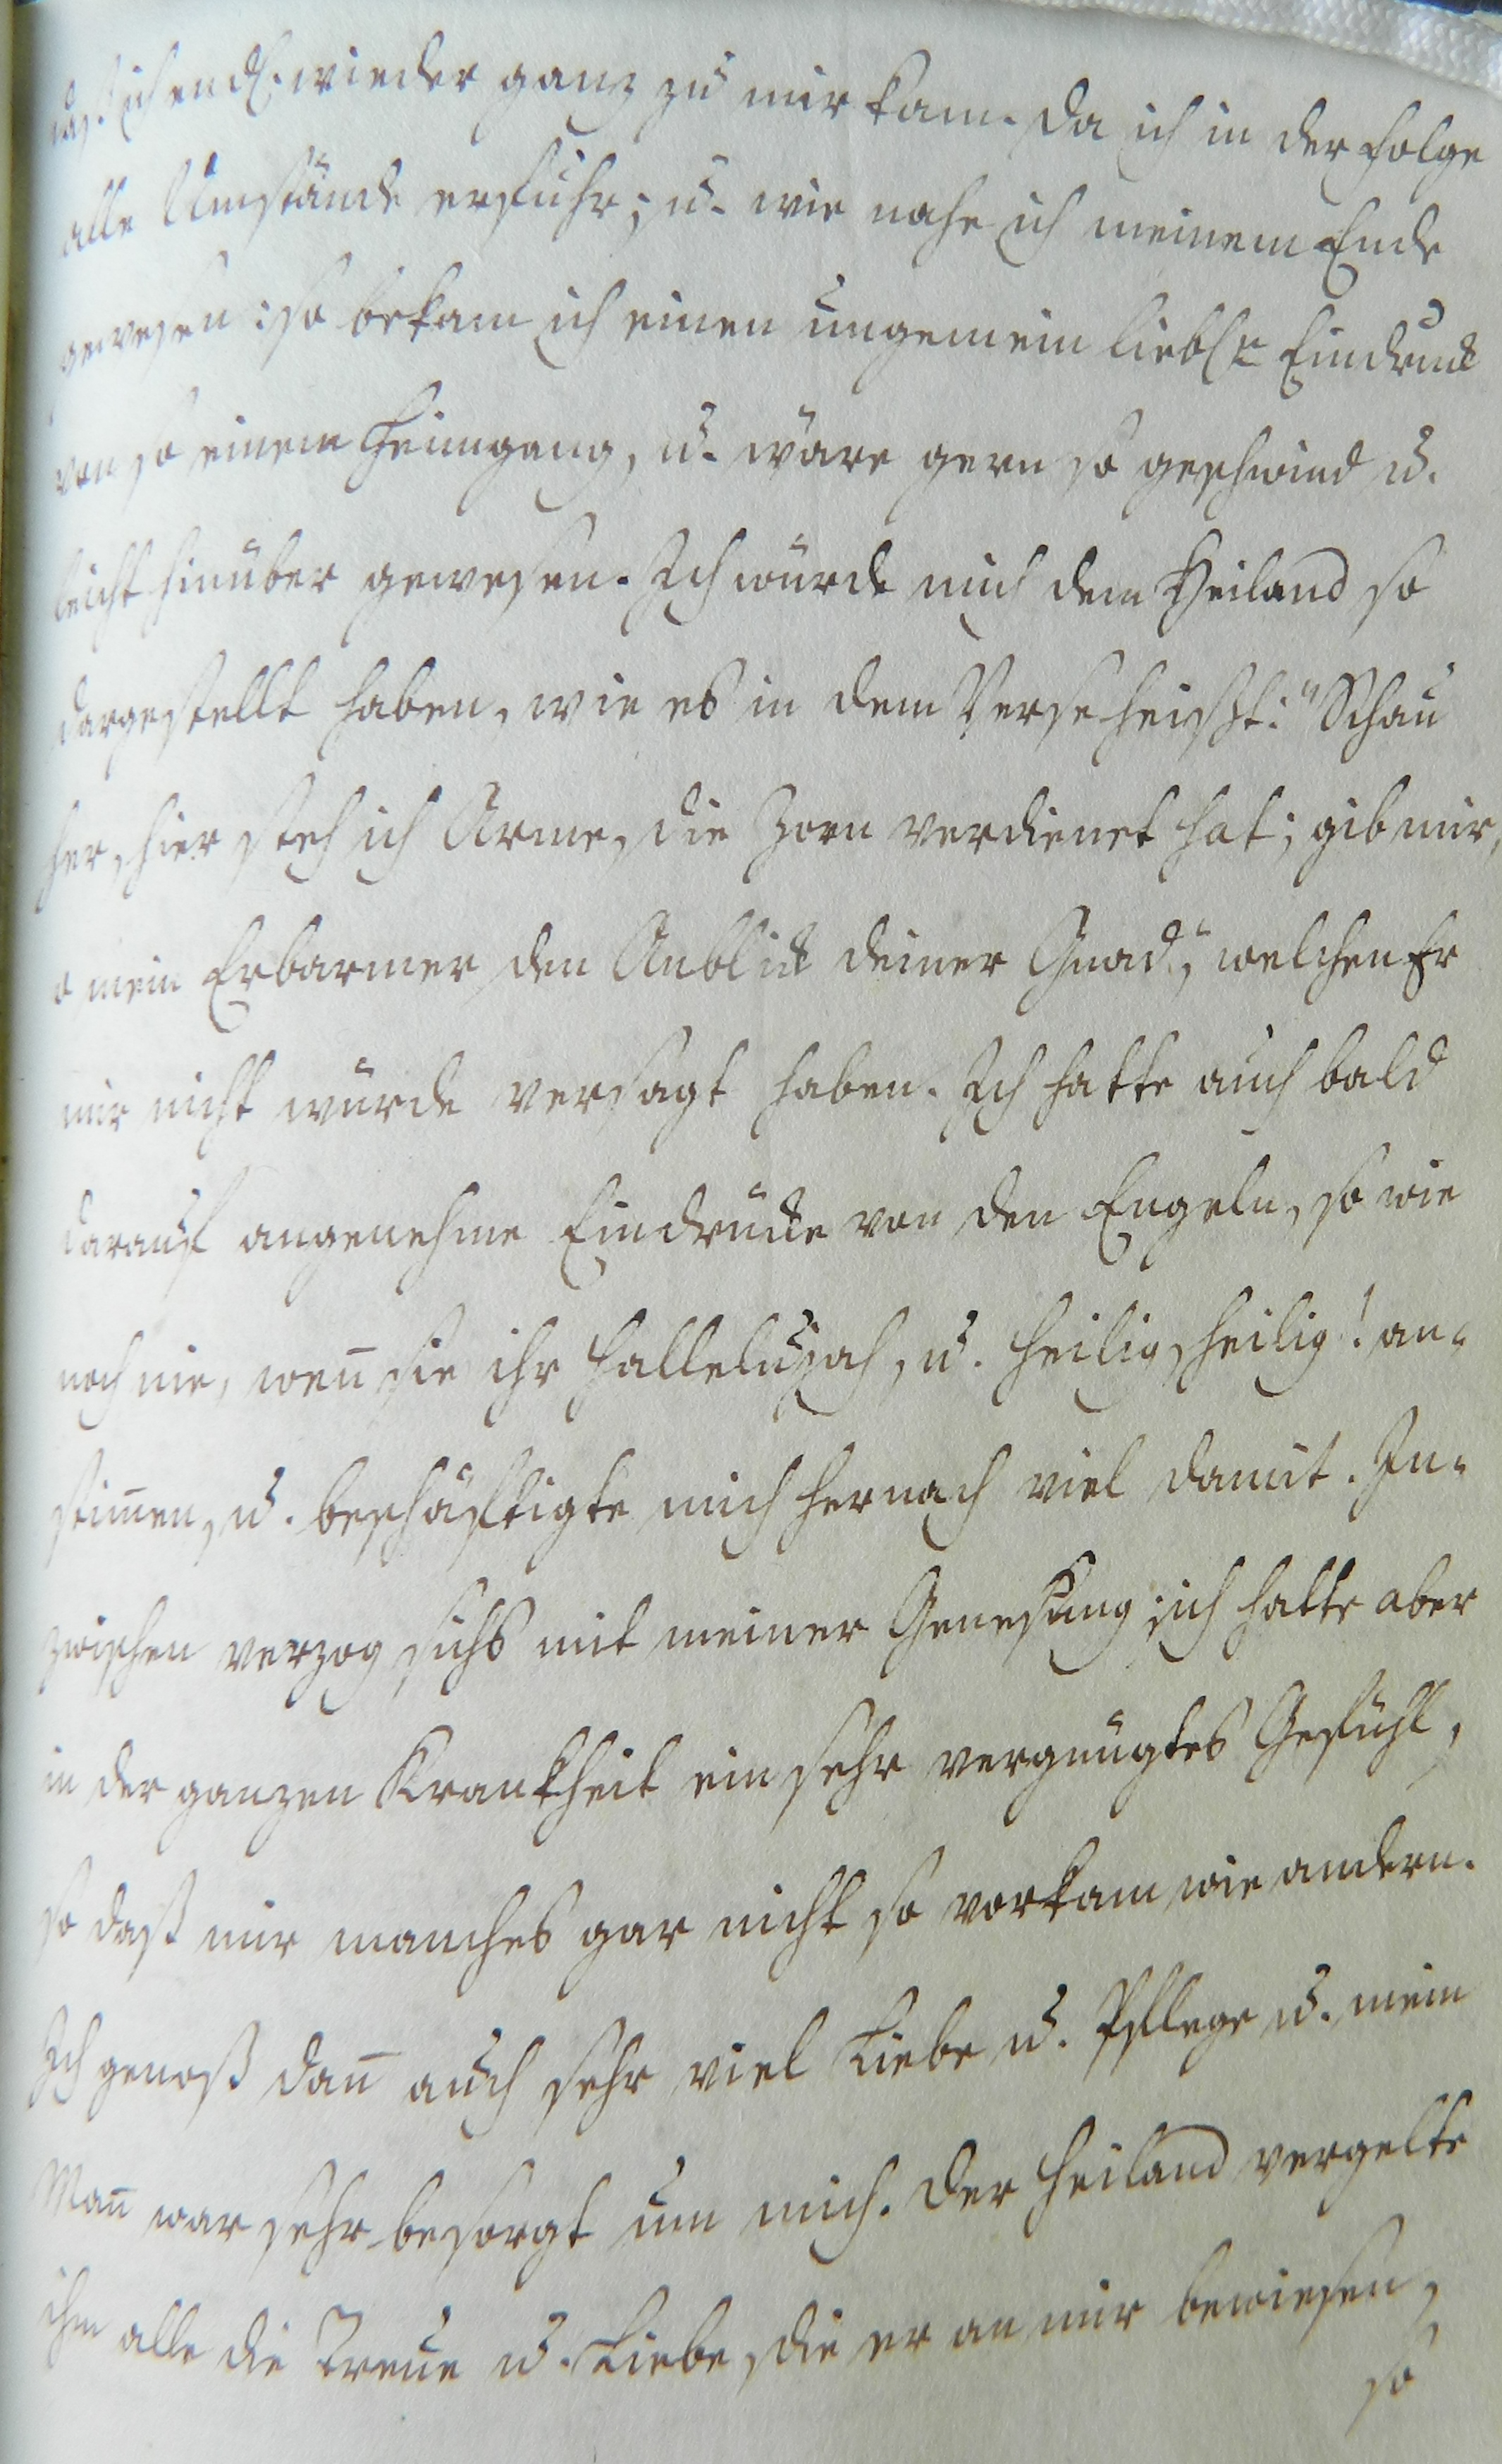 ich endl. wieder ganz zu mir kam. Da ich in der Folge
alle Umstände erfuhr; u. wie nahe ich meinem Ende
gewesen: so bekam ich einen ungemein liebl. Eindruck
von so einem Heimgang, u. wäre gern so geschwind u.
leicht hinüber gewesen. Ich würde mich dem Heiland so
dargestellt haben, wie es in dem Verse heißt: "Schau
her, hier steh ich Arme, die Zorn verdienet hat; gib mir,
o mein Erbarmer den Anblick deiner Gnad", welchen Er
mir nicht würde versagt haben. Ich hatte auch bald
darauf angenehme Eindrücke von den Engeln, so wie
noch nie, weñ sie ihr Hallelujah, u. heilig, heilig! an-
stim̄en, u. beschäftigte mich hernach viel damit. In-
zwischen verzog sichs mit meiner Genesung; ich hatte aber
in der ganzen Krankheit ein sehr vergnügtes Gefühl,
so daß mir manches gar nicht so vorkam wie andern.
Ich genoß dañ auch sehr viel Liebe u. Pflege u. mein
Mañ war sehr besorgt um mich. Der Heiland vergelte
ihm alle die Treue u. Liebe, die er an mir bewiesen,
so